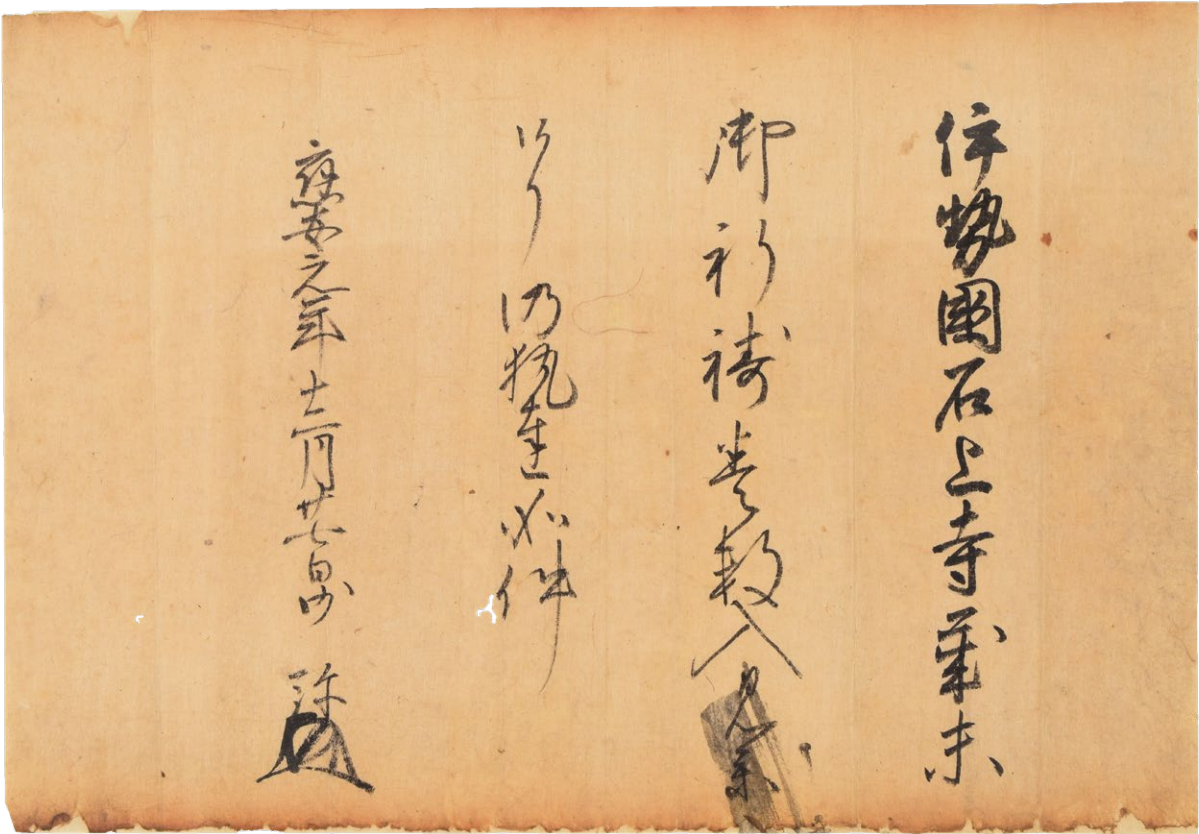 伊勢國石上寺歳末
御祈禱巻数入見参
候了仍執達如件
應安元年十二月廿七日沙弥